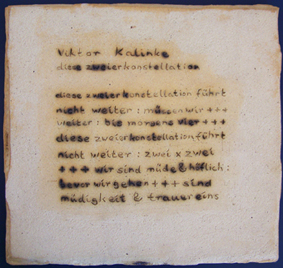 Viktor Kalinke
diese zweierkonstellation
diese zweierkonstellation führt
nicht weiter: müssen wir +++
weiter: bis morgens vier +++
diese zweierkonstellation führt
nicht weiter: zwei x zwei
+++ wir sind müde & höflich:
bevor wir gehen +++ sind
müdigkeit & trauer eins